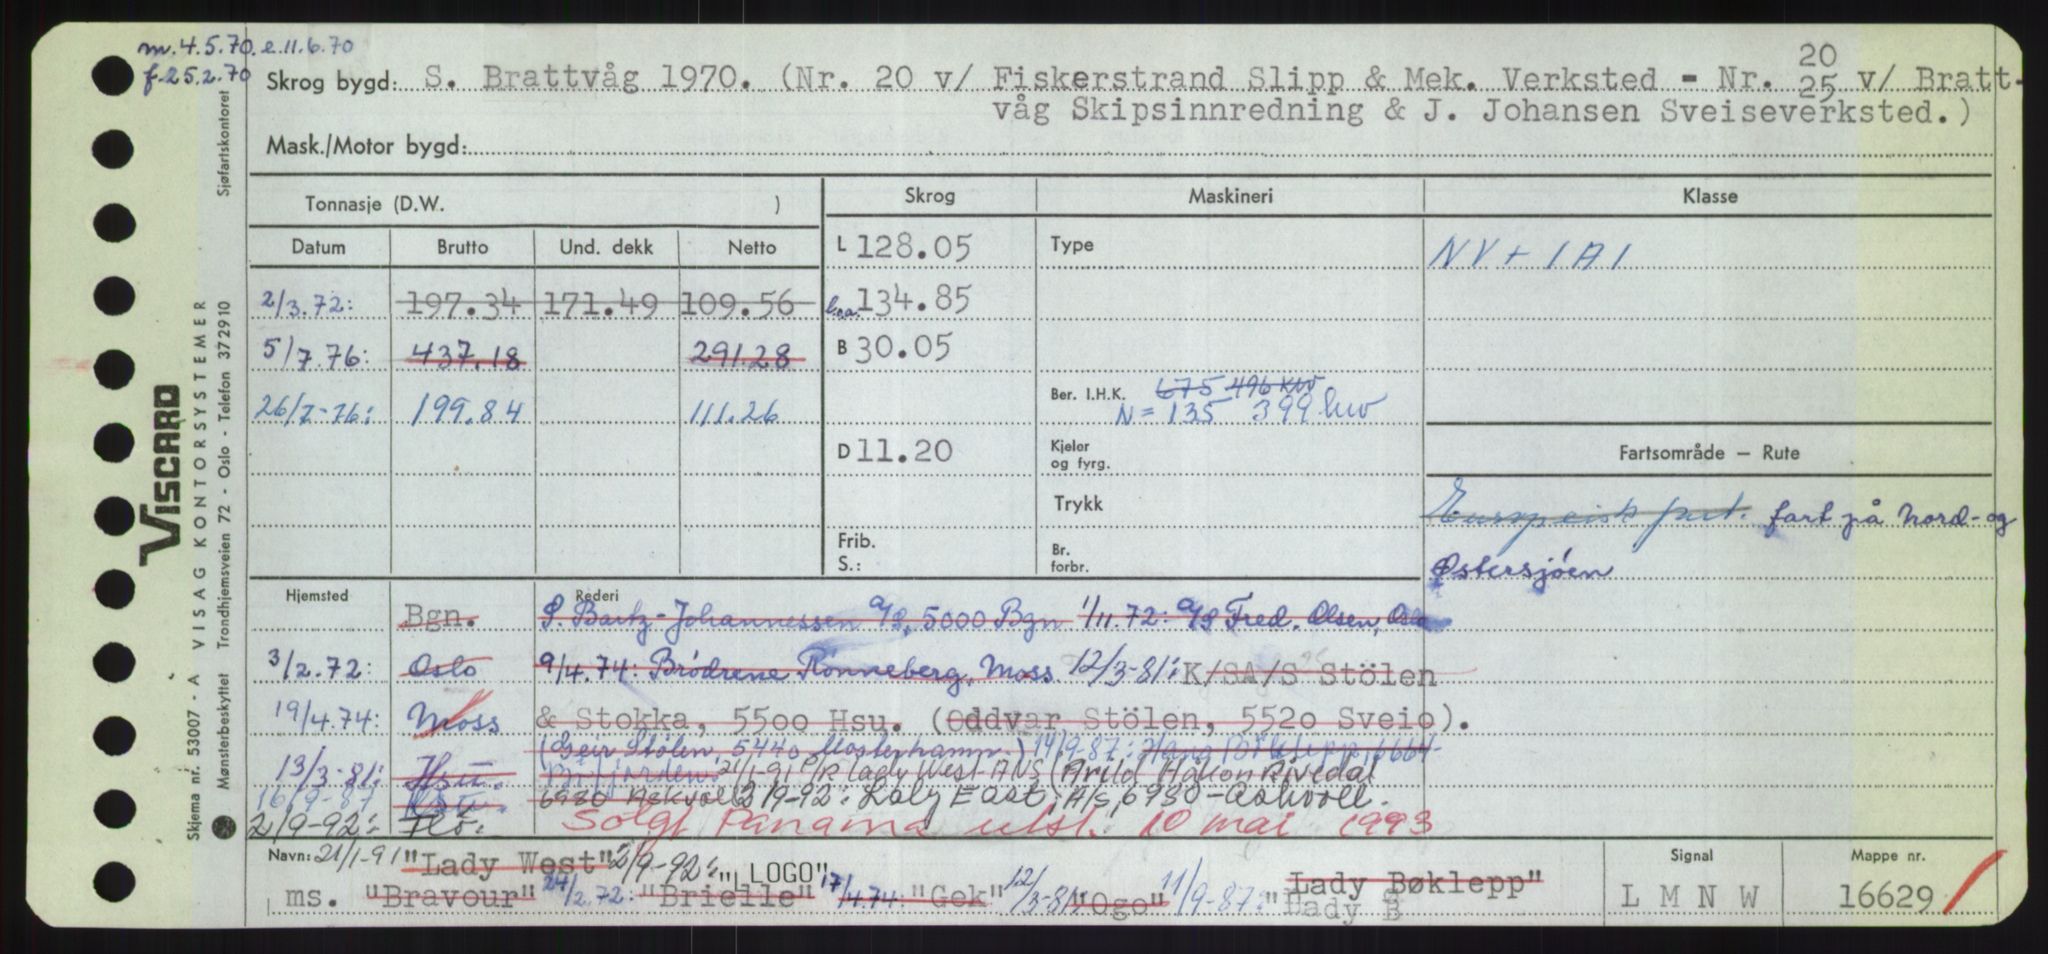 m. 4.5.70. e. 11.6.70
f. 25.2.70
Skrog bygd: S. Brattvåg 1970. (Nr. 20 v/ Fiskerstrand Slipp & Mek. Verksted - Nr. 20 25 v/ Bratt-
våg Skipsinnredning & J. Johansen Sveiseverksted.)
Mask./Motor bygd:
Tonnasje (D.W. ) Skrog Maskineri Klasse
Datum Brutto Und. dekk Netto L 128.05 Type NV + 1A1
2/3.72: 197.34 171.49 109.56 l.o.a. 134.85
5/7.76: 437.18 291.28 B 30.05
26/7-76: 199.84 111.26 Ber. I.H.K. 675 496 kW
N = 135 399 kw
D 11.20 Kjeler og fyrg. Fartsområde — Rute
Trykk Europeisk fart. fart på Nord- og
Frib. S.: Br. forbr. Østersjøen
Hjemsted Rederi
Bgn. P. Bartz-Johannessen A/S, 5000 Bgn 1/11.72: A/S Fred. Olsen, Oslo
3/2.72: Oslo 9/4.74: Brødrene Rønneberg, Moss 12/3-81: K/SA/S Stölen
19/4.74: Moss & Stokka, 5500 Hsu. (Oddvar Stölen, 5520 Sveio).
(Geir Stölen, 5440 Mosterhamn.) 14/9-87: Hans Bøklepp, 6664
13/3-81: Hsu. 21/1-91 P/R Lady West ANS (Arild Håkon Rivedal
16/9-87 Ksu. 6980 Askvoll) 2/9-92: Lady East A/S, 6980 - Askvoll.
2/9-92: Flö. Solgt Panama utsl. 10 mai 1993
Navn: 21/1-91 "Lady West" 2/9-92: "LOGO"
ms. "Bravour" 24/2.72: "Brielle" 17/4.74: "Gek" 12/3-81: "Ogo" 11/9-87: "Lady Bøklepp"
"Lady B
Signal
L M N W
Mappe nr.
16629
Sjøfartskontoret
VISCARD
VISAG KONTORSYSTEMER
Trondhjemsveien 72 - Oslo - Telefon 372910
Skjema nr. 53007 - A
Mønsterbeskyttet